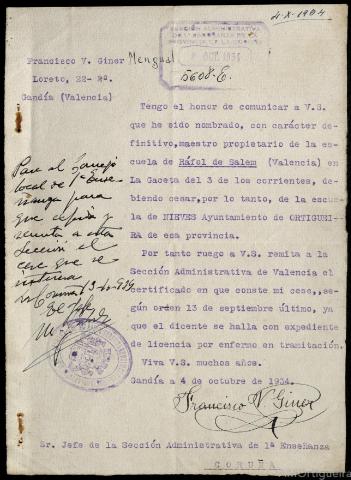 4-X-1934
SECCIÓN ADMINISTRATIVA
OCT. 1934
5608.E.
Francisco V. Giner Mengual
Loreto, 22-2º.
Gandía (Valencia)
Tengo el honor de comunicar a V.S.
que he sido nombrado, con carácter de-
finitivo, maestro propietario de la es-
cuela de Ráfol de Salem (Valencia) en
La Gaceta del 3 de los corrientes, debien-
do cesar, por lo tanto, de la escue-
la de NIEVES Ayuntamiento de ORTIGUEI-
RA de esa provincia.
Por tanto ruego a V.S. remita a la
Sección Administrativa de Valencia el
certificado en que conste mi cese, se-
gún orden 13 de septiembre último, ya
que el dicente se halla con expediente
de licencia por enfermo en tramitación.
Viva V.S. muchos años.
Gandía a 4 de octubre de 1934.
Francisco V Giner
Pase al Consejo
local de 1ª Ense-
ñanza para
que expida y
remita a esta
Sección el
cese que se
interesa
El Jefe
Sr. Jefe de la Sección Administrativa de 1ª Enseñanza
CORUÑA